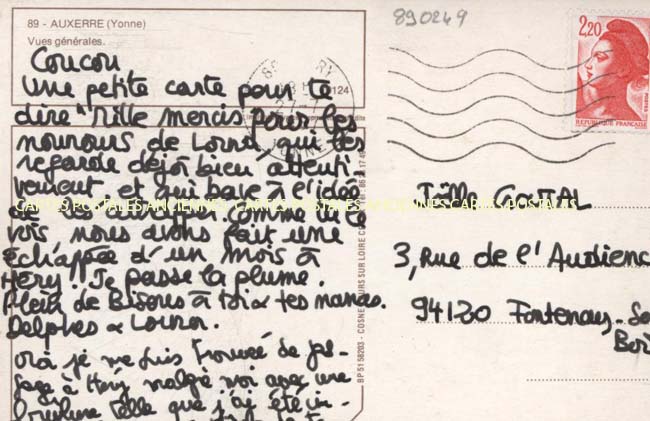 89 - AUXERRE (Yonne)
Vues générales.
Coucou
Une petite carte pour te
dire "Mille mercis pour les
nounours de Lorna, qui les
regarde déjà bien attenti
vement, et qui bave à l'idée
Comme tu le
vois nous avons fait une
échappée d'un mois à
Héry. Je passe la plume.
Plein de Bisous à toi & tes nanas.
Delphes & Lorna.
je me suis trouvée de pas-
sage à Héry malgré moi avec une
telle que j'ai été in-
124
CARTES POSTALES ANCIENNES CARTES POSTALES ANCIENNES CARTES POSTALES
BP 51 58203 - COSNE COURS SUR LOIRE
890249
2,20
POSTES
REPUBLIQUE FRANÇAISE
3, Rue de l'Audienc
94120 Fontenay-So
Boi